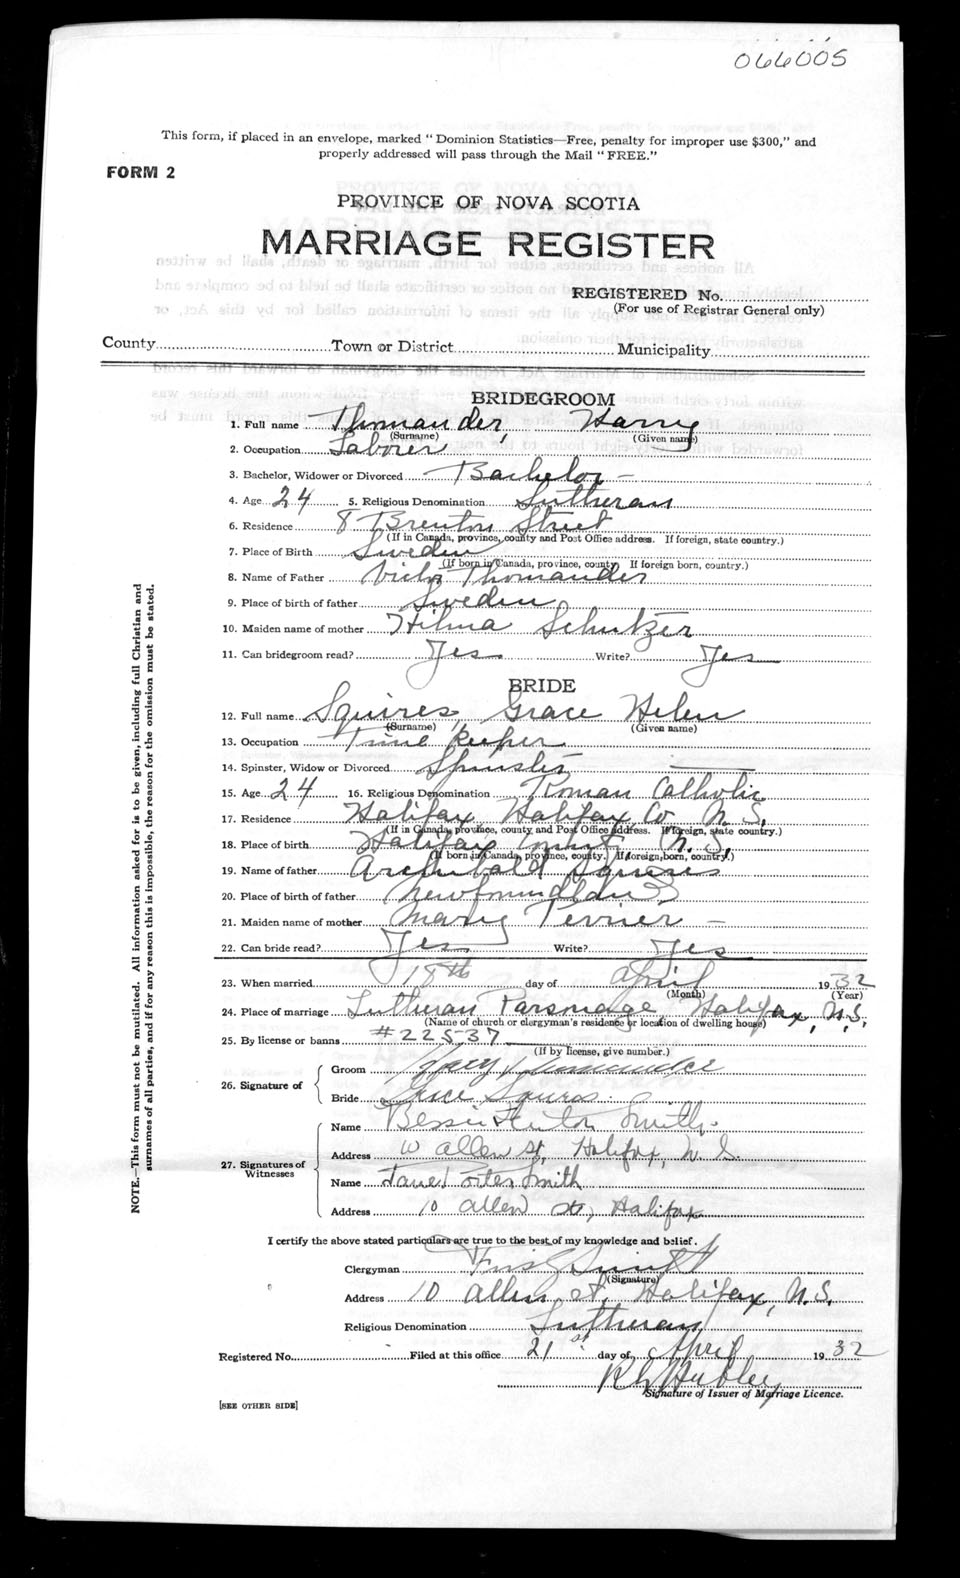 066005
This form, if placed in an envelope, marked "Dominion Statistics—Free, penalty for improper use $300," and
properly addressed will pass through the Mail "FREE."
FORM 2
PROVINCE OF NOVA SCOTIA
MARRIAGE REGISTER
REGISTERED No.
(For use of Registrar General only)
County Town or District Municipality
BRIDEGROOM
1. Full name Thomander, Harry
(Surname) (Given name)
2. Occupation Laborer
3. Bachelor, Widower or Divorced Bachelor –
4. Age 24 5. Religious Denomination Lutheran
6. Residence 8 Brenton Street
(If in Canada, province, county and Post Office address. If foreign, state country.)
7. Place of Birth Sweden
(If born in Canada, province, county. If foreign born, country.)
8. Name of Father Victor Thomander
9. Place of birth of father Sweden
10. Maiden name of mother Hilma Schutzer
11. Can bridegroom read? Yes Write? Yes
BRIDE
12. Full name Squires, Grace Helen
(Surname) (Given name)
13. Occupation Time keeper
14. Spinster, Widow or Divorced Spinster
15. Age 24 16. Religious Denomination Roman Catholic
17. Residence Halifax Halifax Co N.S.
(If in Canada, province, county and Post Office address. If foreign, state country.)
18. Place of birth Halifax County N.S.
(If born in Canada, province, county. If foreign born, country.)
19. Name of father Archibald Squires
20. Place of birth of father Newfoundland
21. Maiden name of mother Mary Perrier –
22. Can bride read? Yes Write? Yes
23. When married 18th day of April 1932
(Month) (Year)
24. Place of marriage Lutheran Parsonage Halifax, N.S.
(Name of church or clergyman's residence or location of dwelling house)
25. By license or banns #22537
(If by license, give number.)
26. Signature of
Groom Harry Thomander
Bride Grace Squires
27. Signatures of Witnesses
Name Bessie Smith
Address 10 Allen St, Halifax, N.S.
Name Porter Smith
Address 10 Allen St, Halifax
I certify the above stated particulars are true to the best of my knowledge and belief.
Clergyman
(Signature)
Address 10 Allen St, Halifax, N.S.
Religious Denomination Lutheran
Registered No. Filed at this office 21st day of April 1932
Hubley
Signature of Issuer of Marriage Licence.
[SEE OTHER SIDE]
NOTE.—This form must not be mutilated. All information asked for is to be given, including full Christian and
surnames of all parties, and if for any reason this is impossible, the reason for the omission must be stated.